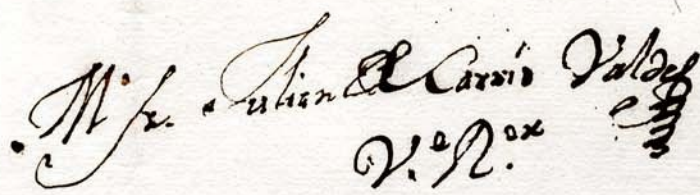 M fr. Julian de Carrió Valdes
V.e R.ex